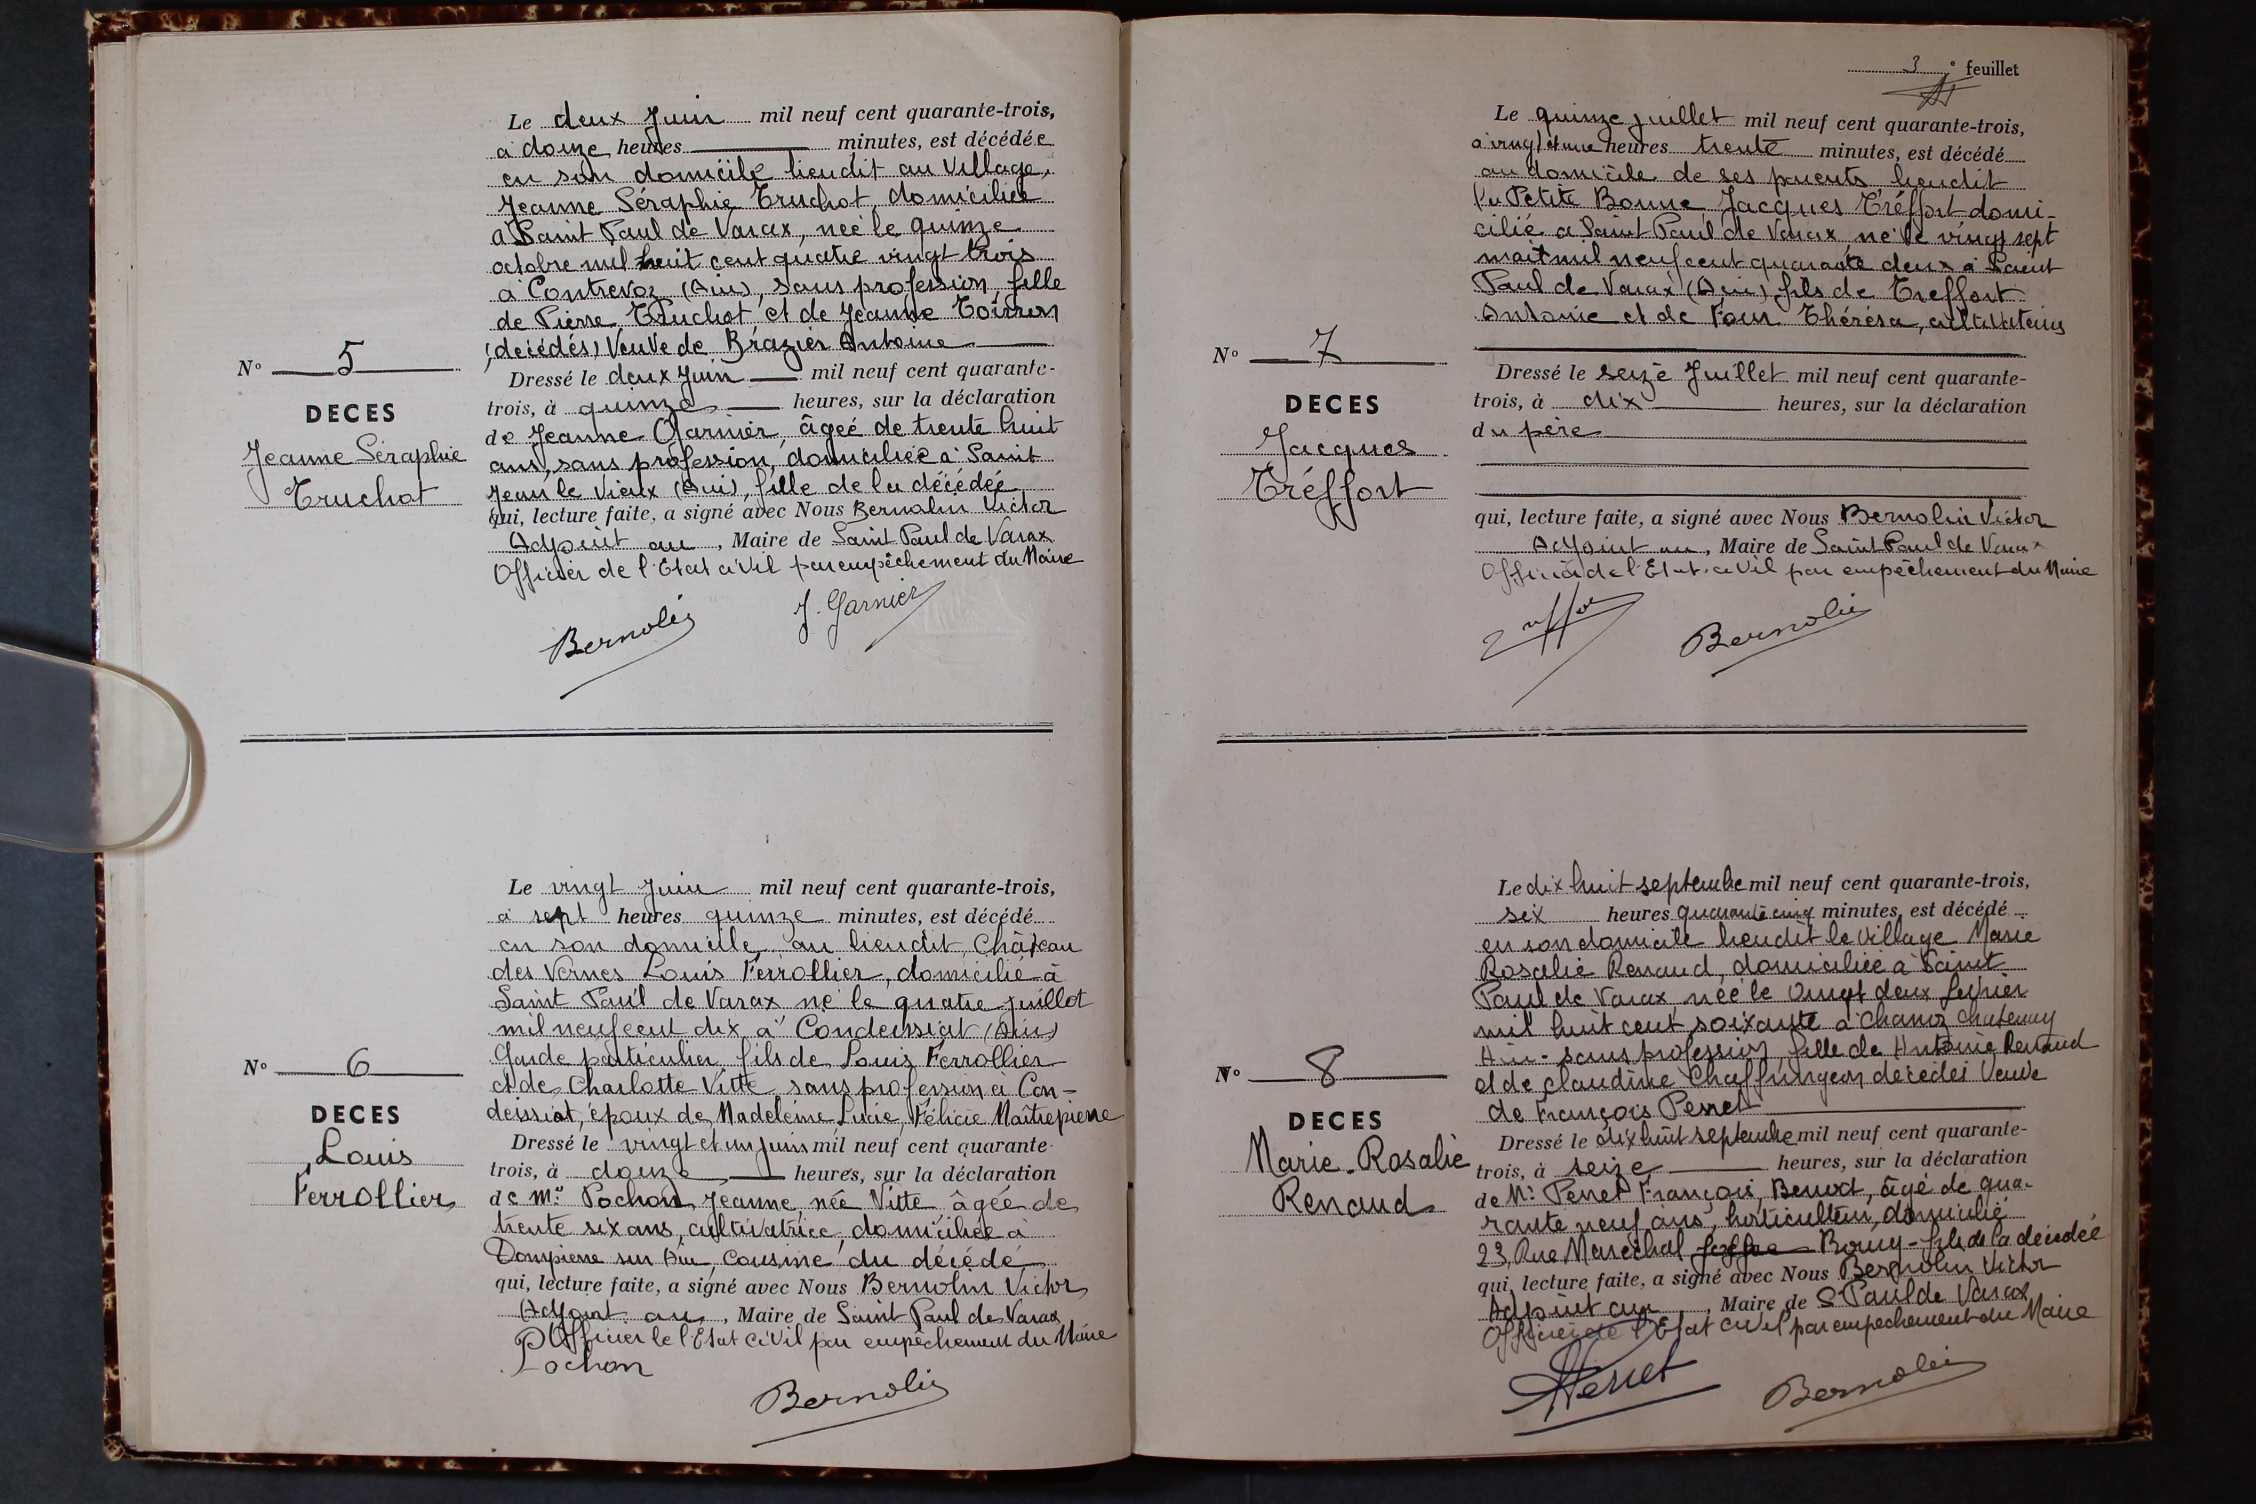 Le deux Juin mil neuf cent quarante-trois,
à douze heures minutes, est décédée
en son domicile lieudit au Village,
Jeanne Séraphie Truchot, domiciliée
à Saint Paul de Varax, née le quinze
octobre mil huit cent quatre vingt trois
à Contrevoz (Ain), sans profession, fille
de Pierre Truchot et de Jeanne
(décédés) Veuve de Brazier Antoine
Nº 5
DECES
Jeanne Séraphie
Truchot
Dressé le deux Juin mil neuf cent quarante-
trois, à quinze heures, sur la déclaration
de Jeanne Garnier, âgeé de trente huit
ans, sans profession, domiciliée à Saint
Jean le Vieux (Ain), fille de la décédée
qui, lecture faite, a signé avec Nous Bernolin Victor
Adjoint au, Maire de Saint Paul de Varax
Officier de l'Etat civil par empêchement du Maire
Bernolin J. Garnier
Le vingt Juin mil neuf cent quarante-trois,
à sept heures quinze minutes, est décédé
en son domicile au lieudit Château
des Vernes Louis Ferrollier, domicilié à
Saint Paul de Varax né le quatre juillet
mil neuf cent dix à Condeissiat (Ain)
Garde particulier fils de Louis Ferrollier
et de Charlotte Vitte sans profession à Con-
deissiat, époux de Madeleine, Lucie, Félicie Maîtrepierre
Nº 6
DECES
Louis
Ferrollier
Dressé le vingt et un juin mil neuf cent quarante-
trois, à douze heures, sur la déclaration
de Mme Pochon Jeanne, née Vitte âgée de
trente six ans, cultivatrice, domiciliée à
Dompierre sur Ain, cousine du décédé
qui, lecture faite, a signé avec Nous Bernolin Victor
Adjoint au, Maire de Saint Paul de Varax
Officier de l'Etat Civil par empêchement du Maire
Pochon
Bernolin
3e feuillet
Le quinze juillet mil neuf cent quarante-trois,
à vingt et une heures trente minutes, est décédé
au domicile de ses parents lieudit
la Petite Bonne Jacques Tréffort domi-
cilié à Saint Paul de Varax né le vingt sept
mil neuf cent quarante deux à Saint
Paul de Varax (Ain) fils de Treffort
Antoine et de Four Thérésa, cultivateurs
Nº 7
DECES
Jacques
Tréffort
Dressé le seize Juillet mil neuf cent quarante-
trois, à dix heures, sur la déclaration
du père
qui, lecture faite, a signé avec Nous Bernolin Victor
Adjoint au, Maire de Saint Paul de Varax
Officier de l'Etat civil par empêchement du Maire
Bernolin
Le dix huit septembre mil neuf cent quarante-trois,
six heures quarante cinq minutes, est décédé
en son domicile lieudit le Village Marie
Rosalie Renaud, domiciliée à Saint
Paul de Varax née le vingt deux
mil huit cent soixante à Chanoz Chatenay
Ain - sans profession, fille de Antoine Renaud
et de Claudine Chaffringeon décédés Veuve
de François Perret
Nº 8
DECES
Marie-Rosalie
Renaud
Dressé le dix huit septembre mil neuf cent quarante-
trois, à seize heures, sur la déclaration
de Mr Perret François, Benoit, âgé de qua-
rante neuf ans, horticulteur, domicilié
23, Rue Maréchal Bourg - fils de la décédée
qui, lecture faite, a signé avec Nous Bernolin Victor
Adjoint au, Maire de St Paul de Varax
Officier de l'Etat civil par empêchement du Maire
Perret Bernolin